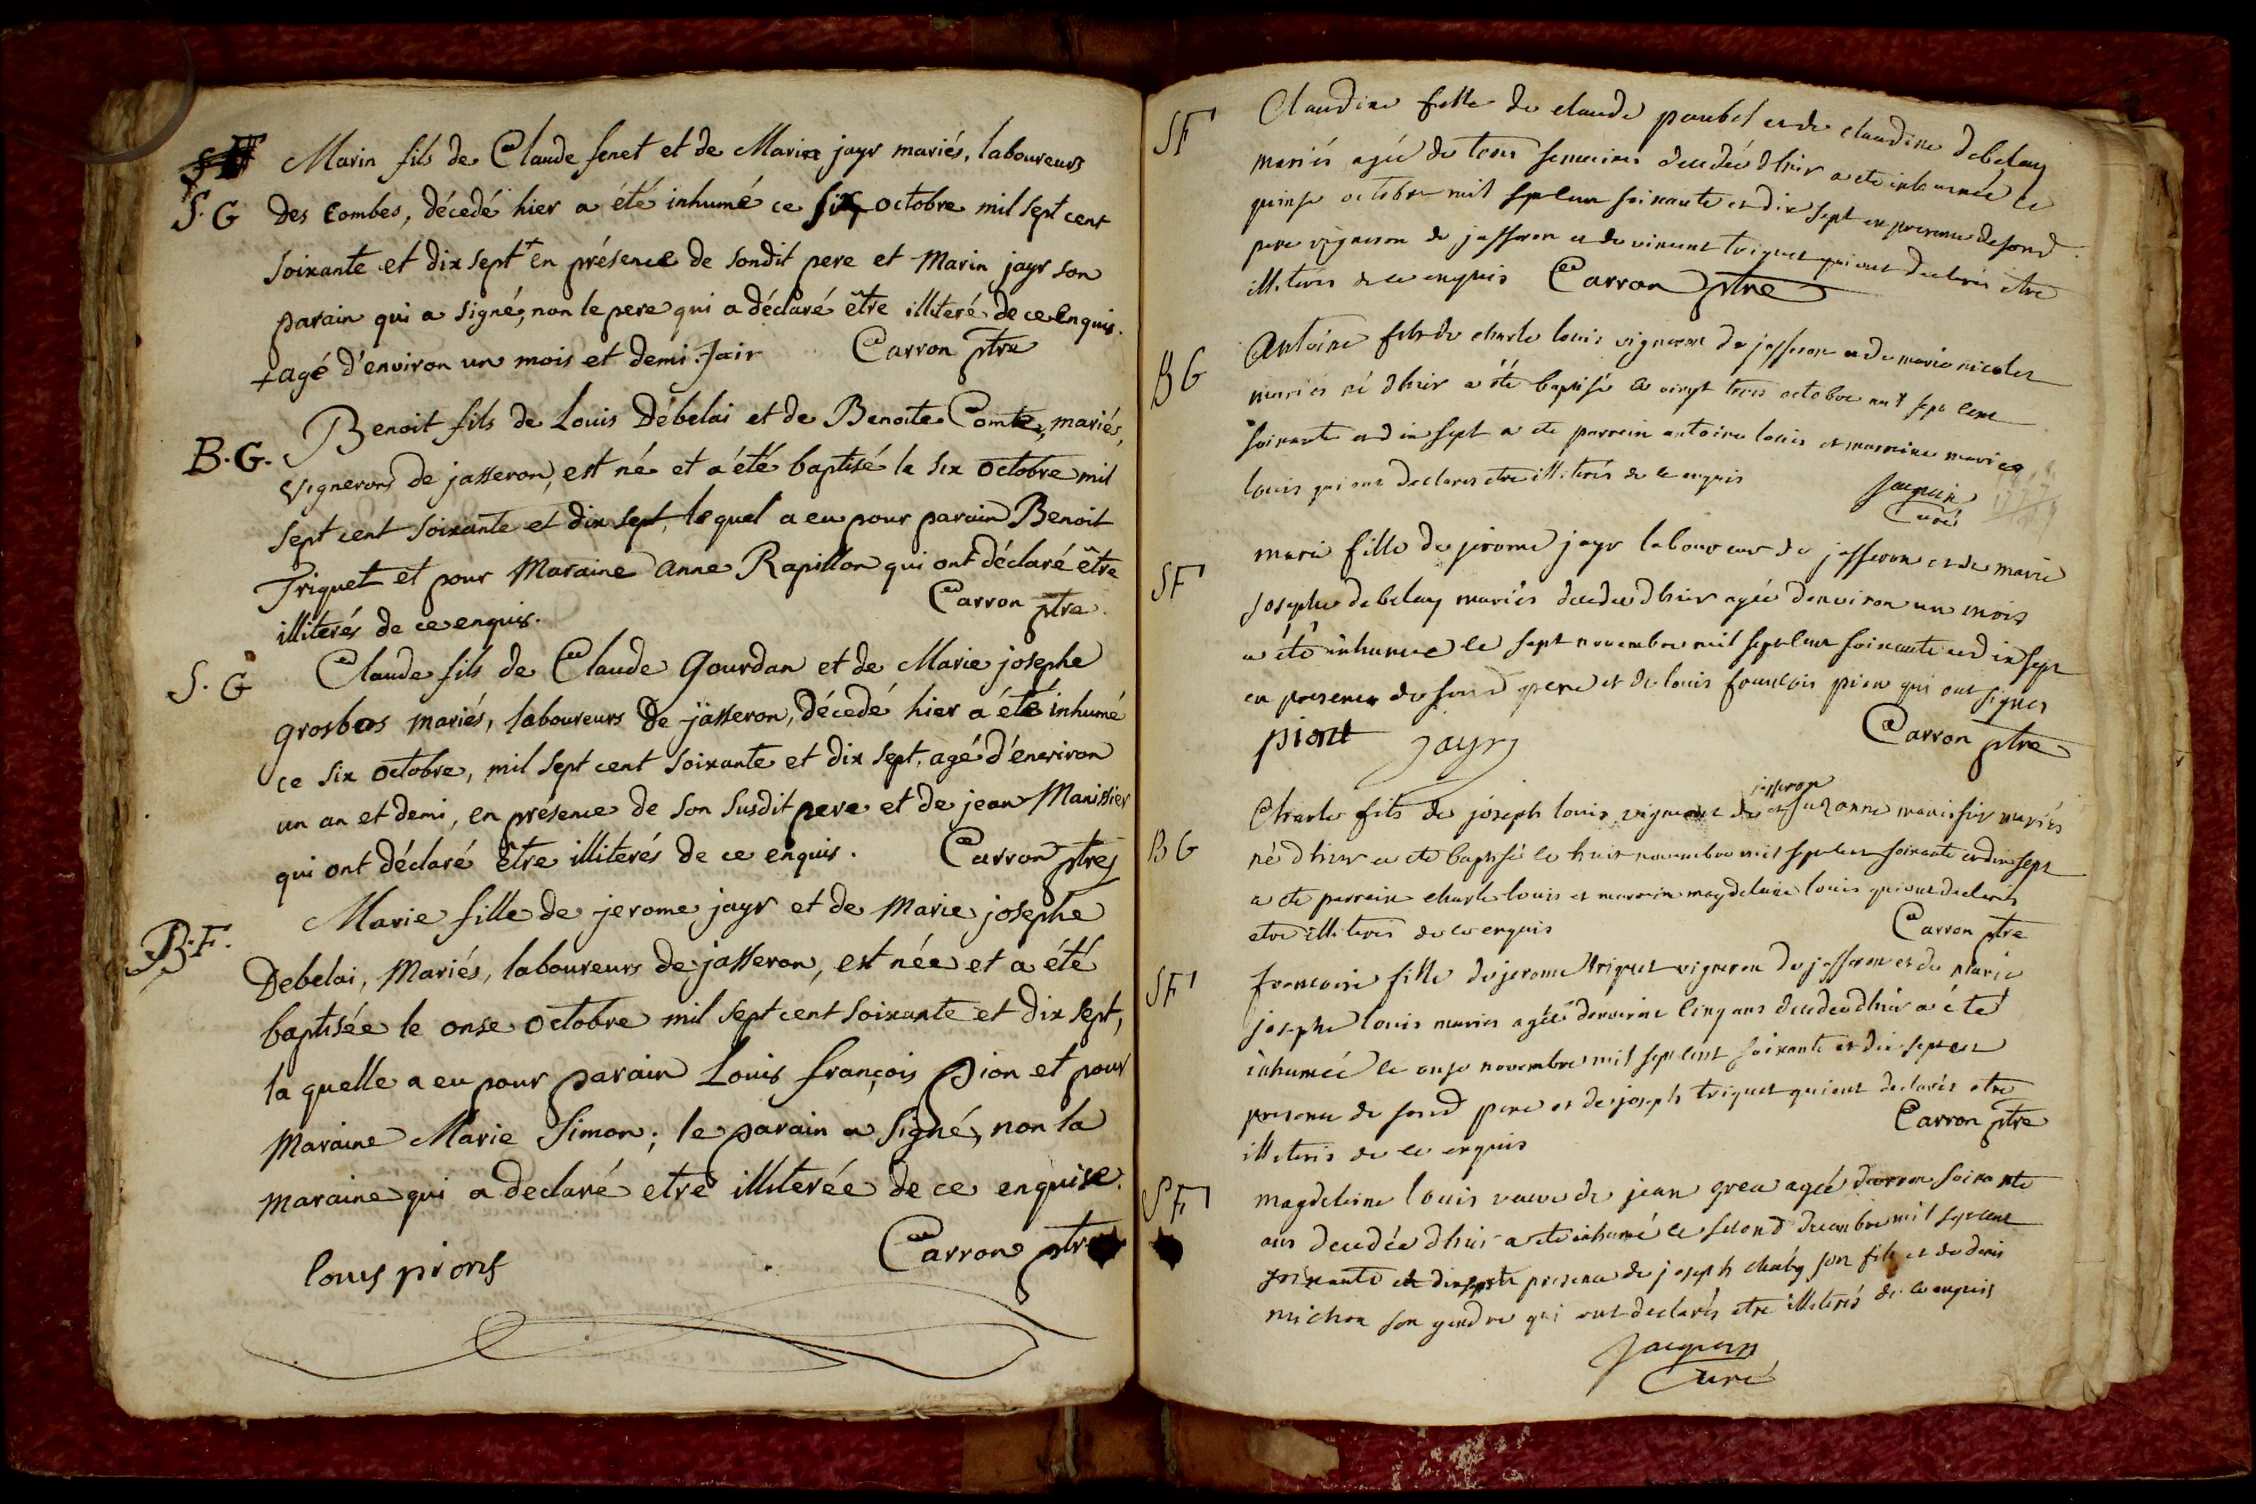 SF
S. G
Marin fils de Claude fenet et de Marie jayr mariés, laboureurs
des Combes, décedé hier a été inhumé ce six octobre mil sept cent
soixante et dix sept + en présence de sondit pere et Marin jayr son
parain qui a signé, non le pere qui a déclaré être illiteré de ce enquis.
+ agé d'environ un mois et demi. Jair Carron ptre
B. G.
Benoit fils de Louis Débelai et de Benoite Comte, mariés,
vignerons de jasseron, est né et a été baptisé le six octobre mil
sept cent soixante et dix sept, lequel a eu pour parain Benoit
Triquet et pour Maraine Anne Rapillon qui ont déclaré être
illiterés de ce enquis. Carron ptre.
S. G
Claude fils de Claude Gourdan et de Marie josephe
grosbos mariés, laboureurs de jasseron, décedé hier a été inhumé
ce six octobre, mil sept cent soixante et dix sept, agé d'environ
un an et demi, en présence de son susdit pere et de jean Manissier
qui ont déclaré être illiterés de ce enquis. Carron ptre
B. F.
Marie fille de jerome jayr et de Marie josephe
Debelai, Mariés, laboureurs de jasseron, est née et a été
baptisée le onse octobre mil sept cent soixante et dix sept,
la quelle a eu pour parain Louis françois Pion et pour
Maraine Marie Simon; le parain a signé, non la
maraine qui a declaré etre illiterée de ce enquise.
Carron ptre
louis pions
SF
Claudine fille de claude paubel et de claudine debelay
mariés agée de trois semaines decedée dhier a ete inhumée ce
quinse octobre mil sept cent soixante et dix sept en presence de sond
pere vigneron de jasseron et de vincent triquet qui ont declarés etre
illiterés de ce enquis Carron ptre
BG
Antoine fils de charle louis vigneron de jasseron et de marie nicolet
mariés né dhier a été baptisé le vingt trois octobre mil sept cent
soixante et dix sept a ete parrein antoine louis et marraine marie
louis qui ont declarés etre illiterés de ce enquis
Jacquin
Curé
SF
marie fille de jerome jayr laboureur de jasseron et de marie
josephe debelay mariés decedée dhier agée denviron un mois
a été inhumée le sept novembre mil sept cent soixante et dix sept
en presence de sond pere et de louis francois pion qui ont signés
piont jayr Carron ptre
BG
Charle fils de joseph louis vigneron de jasseron et suzanne manissier mariés
né dhier a ete baptisé le huit novembre mil sept cent soixante et dix sept
a ete parrein charle louis et marreine magdelaine louis qui ont declarés
etre illiterés de ce enquis Carron ptre
SF
francoise fille de jerome triquet vigneron de jasseron et de marie
josephe louis mariés agée denviron cinq ans decedée dhier a été
inhumée le onse novembre mil sept cent soixante et dix sept en
presence de sond pere et de joseph triquet qui ont declarés etre
illiterés de ce enquis Carron ptre
SF
magdeleine louis veuve de jean grea agée denviron soixante
ans decedée dhier a ete inhumé le second decembre mil sept cent
soixante et dix sept en presence de joseph son fils et de denis
michon son gendre qui ont declarés etre illiterés de ce enquis
Jacquin
Curé